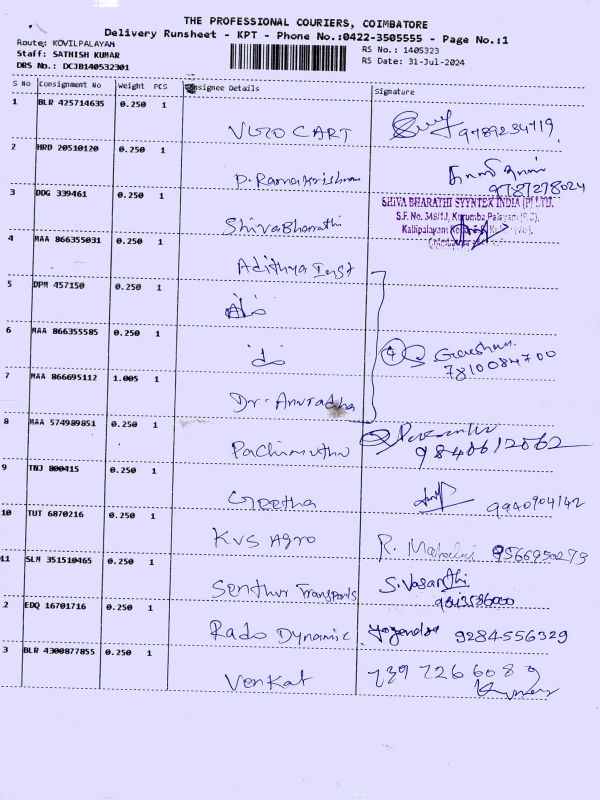 THE PROFESSIONAL COURIERS, COIMBATORE
Delivery Runsheet - KPT - Phone No.:0422-3505555 - Page No.:1
Route: KOVILPALAYAM
Staff: SATHISH KUMAR
DRS No.: DCJB140532301
RS No.: 1405323
RS Date: 31-Jul-2024
S No Consignment No Weight PCS Consignee Details Signature
1 BLR 425714635 0.250 1
VGRO CART 9789234719
2 HRD 20510120 0.250 1
P. Ramakrishnan 9787278024
3 DDG 339461 0.250 1
ShivaBharathi
SHIVA BHARATHI SYYNTEX INDIA (P) LTD.
S.F. No. 348/1J, Kurumba Palayam
4 MAA 866355031 0.250 1
Adithya Inst
5 DPM 457150 0.250 1
do
6 MAA 866355585 0.250 1
do
4 7810084700
7 MAA 866695112 1.005 1
Dr. Anuradha
8 MAA 574989851 0.250 1
Pachimuthu 9840612062
9 TNJ 800415 0.250 1
Geetha 9940904142
10 TUT 6870216 0.250 1
KVS AGRO R. 9566950273
11 SLM 351510465 0.250 1
Senthur Transports S. Vasanthi
2 EDQ 16701716 0.250 1
Rado Dynamic Yogendra 9284556329
3 BLR 4300877855 0.250 1
Venkat 7397266089